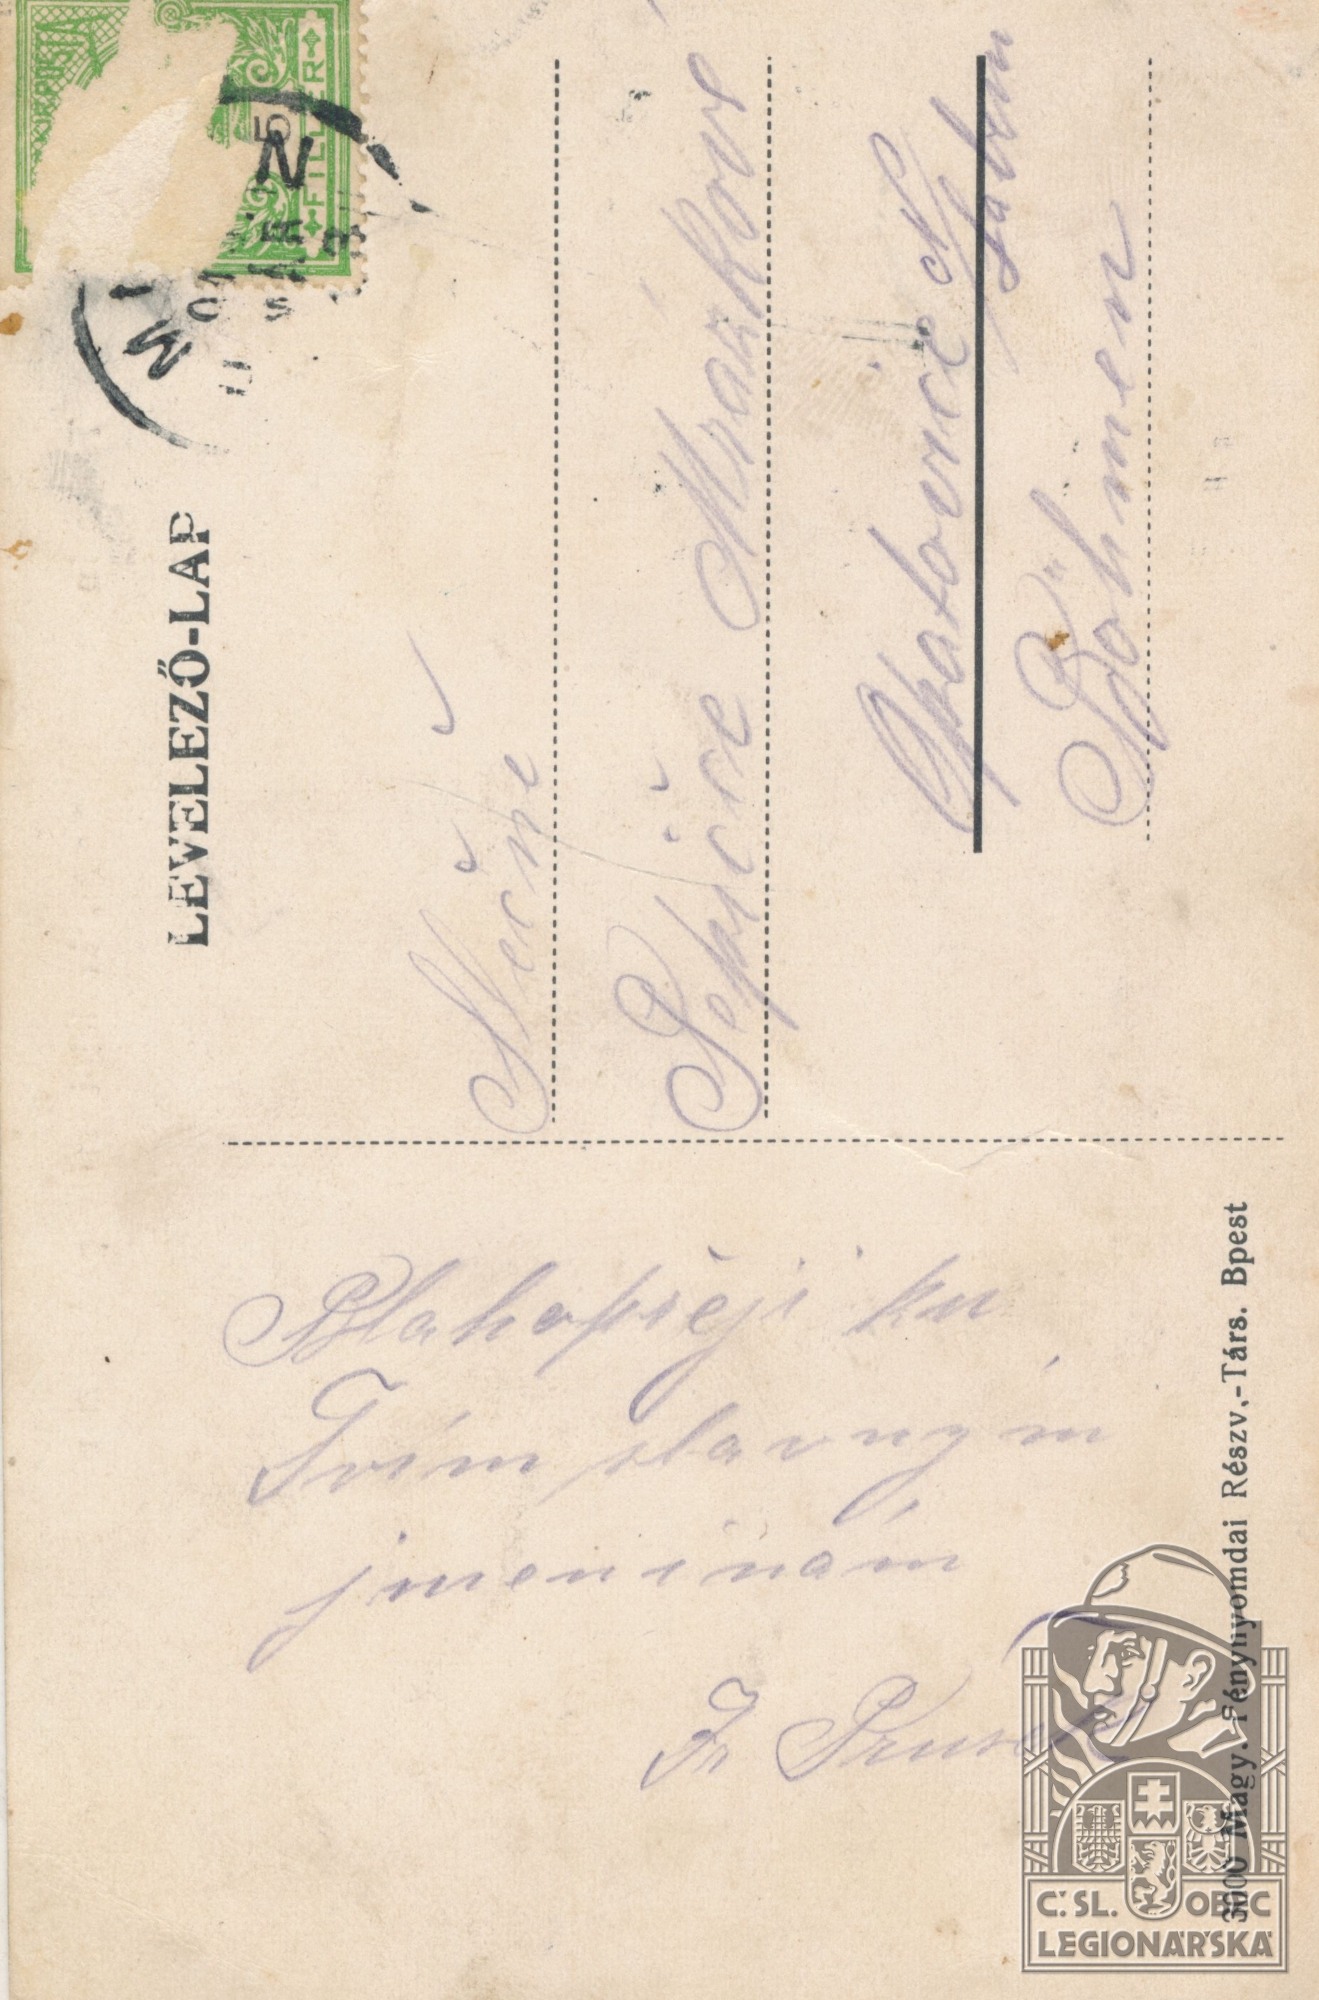 LEVELEZŐ-LAP
5
FILLÉR
Slečně
Pepičce Mrázkové
Opatovice N/ Labem
Böhmen
Blahopřeji ku
Tvím slavným
jmeninám
Fr
3000 Magy. Fénynyomdai Részv.-Társ. Bpest
Č.SL. OBEC
LEGIONÁŘSKÁ